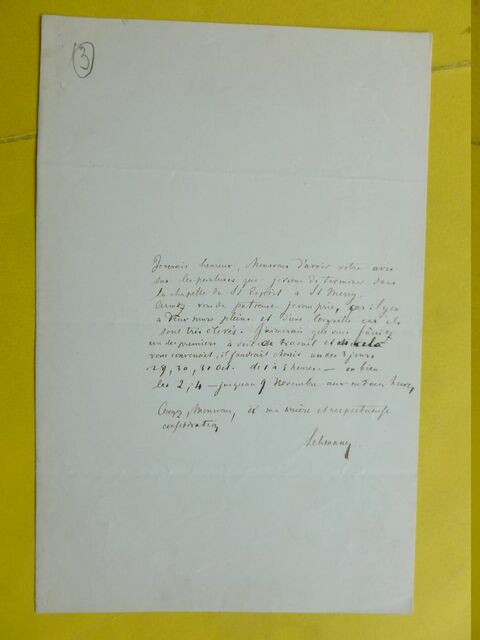 3
Je serais heureux, Monsieur d'avoir votre avis
sur les peintures que je viens de terminer dans
la chapelle du St Esprit à St Merry.
venir du patronne je vous prie, car il y en
a deux murs pleins et d'une lorgnette car ils
sont très élevés. J'aimerais que vous fussiez
un des premiers à voir ce travail et si cela
vous convenait, il faudrait choisir un des 3 jours
29, 30, 31 Oct. de 1 à 3 heures — ou bien
les 2, 4 — jusqu'au 9 Novembre aux mêmes heures,
Croyez, Monsieur, à ma sincère et respectueuse
considération
Lehmann